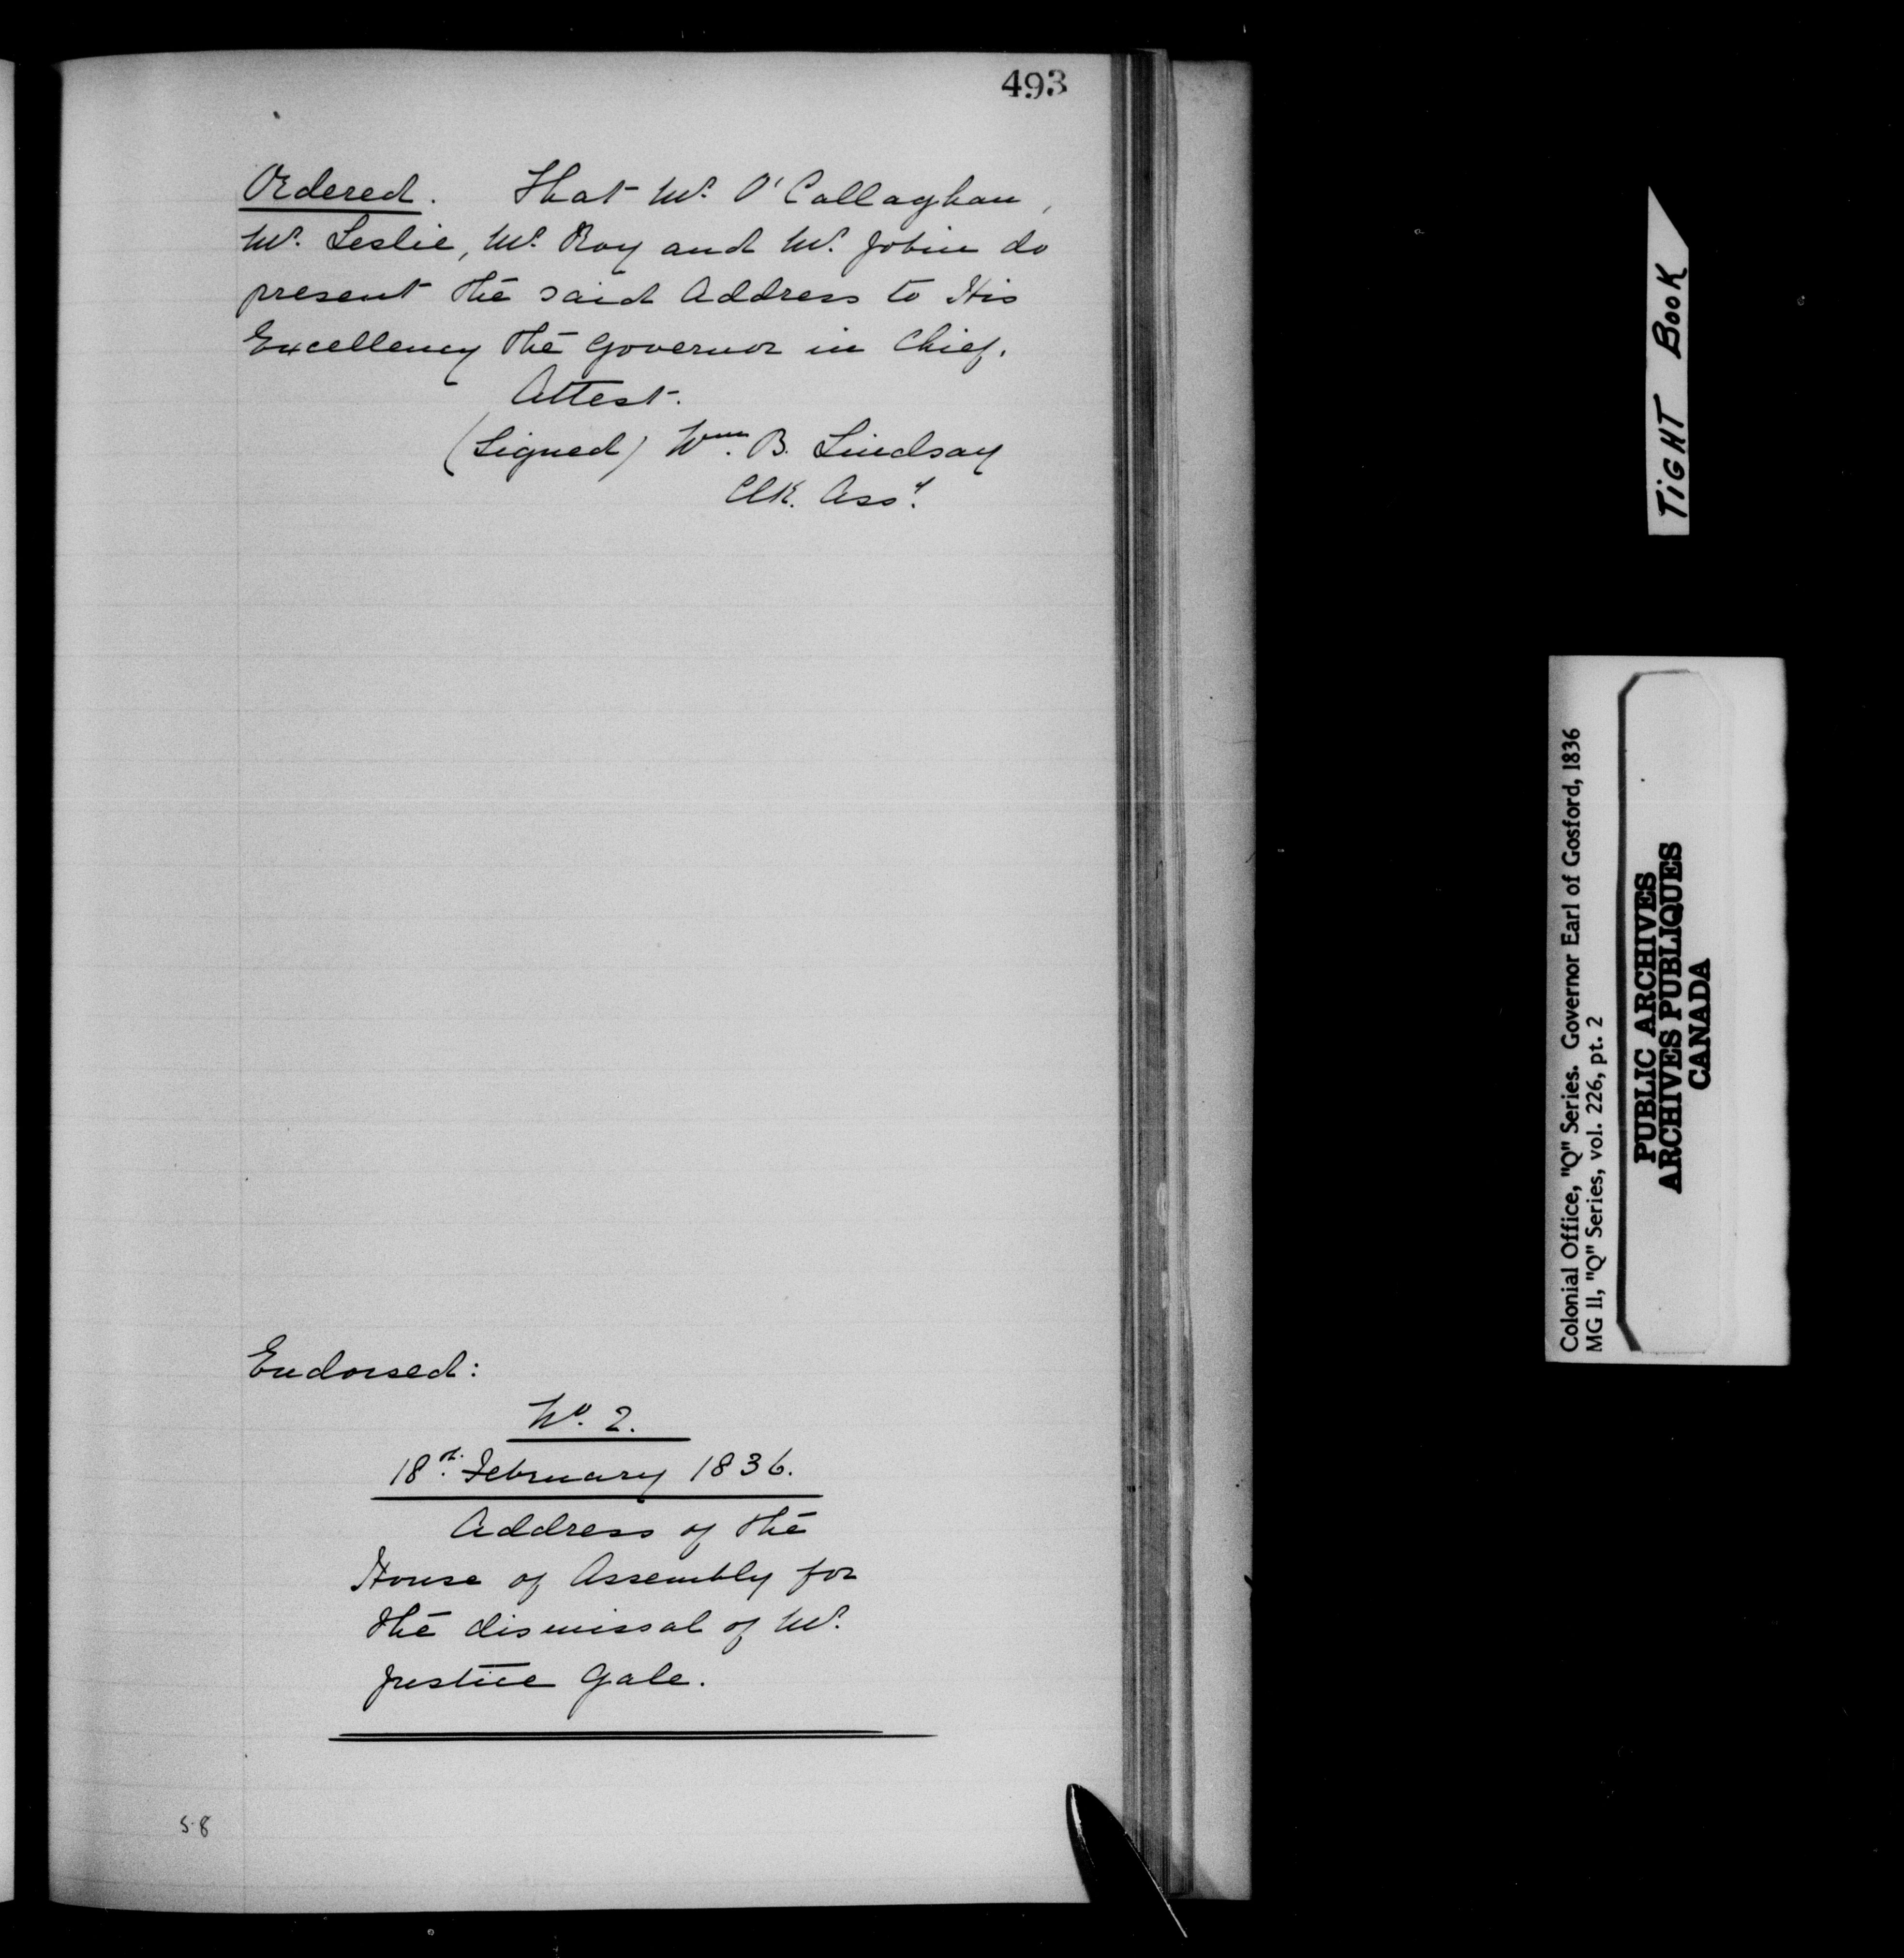 493
Ordered. That Mr. O'Callaghan,
Mr. Leslie, Mr. Roy and Mr. Jobin do
present the said Address to His
Excellency the Governor in Chief.
Attest.
(Signed) Wm. B. Lindsay
Clk. Assy.
Endorsed:
No. 2.
18th. February 1836.
Address of the
House of Assembly for
the dismissal of Mr.
Justice Gale.
58
TIGHT BOOK
Colonial Office, "Q" Series. Governor Earl of Gosford, 1836
MG 11, "Q" Series, vol. 226, pt. 2
PUBLIC ARCHIVES
ARCHIVES PUBLIQUES
CANADA